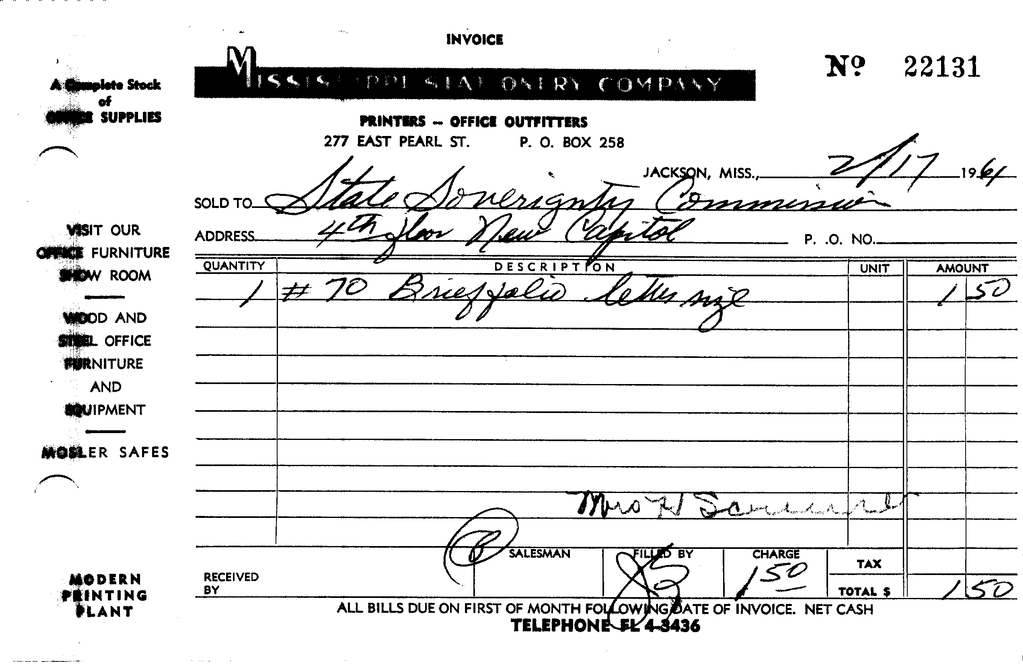 INVOICE
Nº 22131
MISSISSIPPI STATIONERY COMPANY
PRINTERS — OFFICE OUTFITTERS
277 EAST PEARL ST. P. O. BOX 258
A Complete Stock
of
OFFICE SUPPLIES
VISIT OUR
OFFICE FURNITURE
SHOW ROOM
WOOD AND
STEEL OFFICE
FURNITURE
AND
EQUIPMENT
MOSLER SAFES
MODERN
PRINTING
PLANT
JACKSON, MISS., 2/17 1961
SOLD TO State Soverignty Commission
ADDRESS 4th floor New Capitol P. O. NO.
QUANTITY DESCRIPTION UNIT AMOUNT
1 # 70 Brieffolio letter size 1 50
Mrs H
SALESMAN FILLED BY CHARGE TAX
RECEIVED BY 1 50 TOTAL $ 1 50
ALL BILLS DUE ON FIRST OF MONTH FOLLOWING DATE OF INVOICE. NET CASH
TELEPHONE FL 4-3436